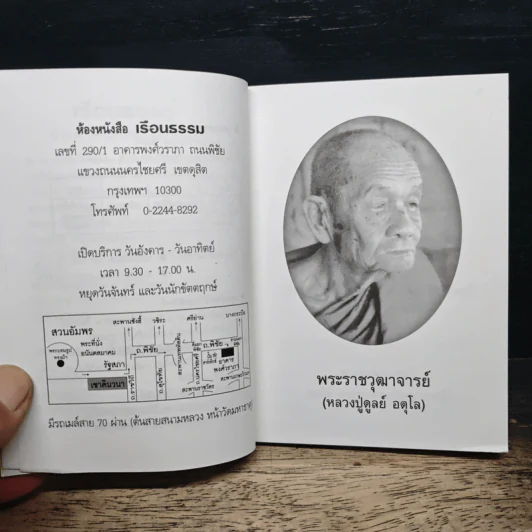 ห้องหนังสือ เรือนธรรม
เลขที่ 290/1 อาคารพงศ์วราภา ถนนพิชัย
แขวงถนนนครไชยศรี เขตดุสิต
กรุงเทพฯ 10300
โทรศัพท์ 0-2244-8292
เปิดบริการ วันอังคาร - วันอาทิตย์
เวลา 9.30 - 17.00 น.
หยุดวันจันทร์ และวันนักขัตฤกษ์
สวนอัมพร
สะพานซังฮี้
วชิระ
ศรีย่าน
บางกระบือ
พระที่นั่ง
อนันตสมาคม
รัฐสภา
เขาดินวนา
ถ.ราชวิถี
ถ.พิชัย
ถ.สุโขทัย
ถ.พิชัย
อาคาร
พงศ์วราภา
มีรถเมล์สาย 70 ผ่าน (ต้นสายสนามหลวง หน้าวัดมหาธาตุ
พระราชวุฒาจารย์
(หลวงปู่ดูลย์ อตุโล)